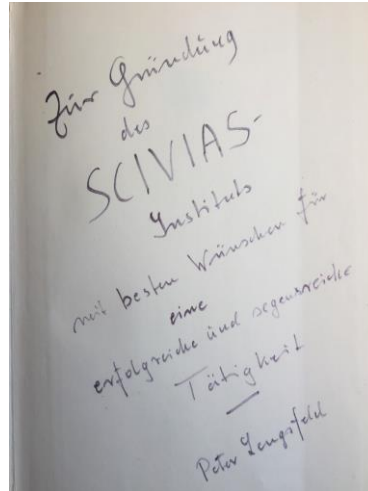 Zur Gründung
des
SCIVIAS-
Instituts
mit besten Wünschen für
eine
erfolgreiche und segensreiche
Tätigkeit
Peter Lengsfeld